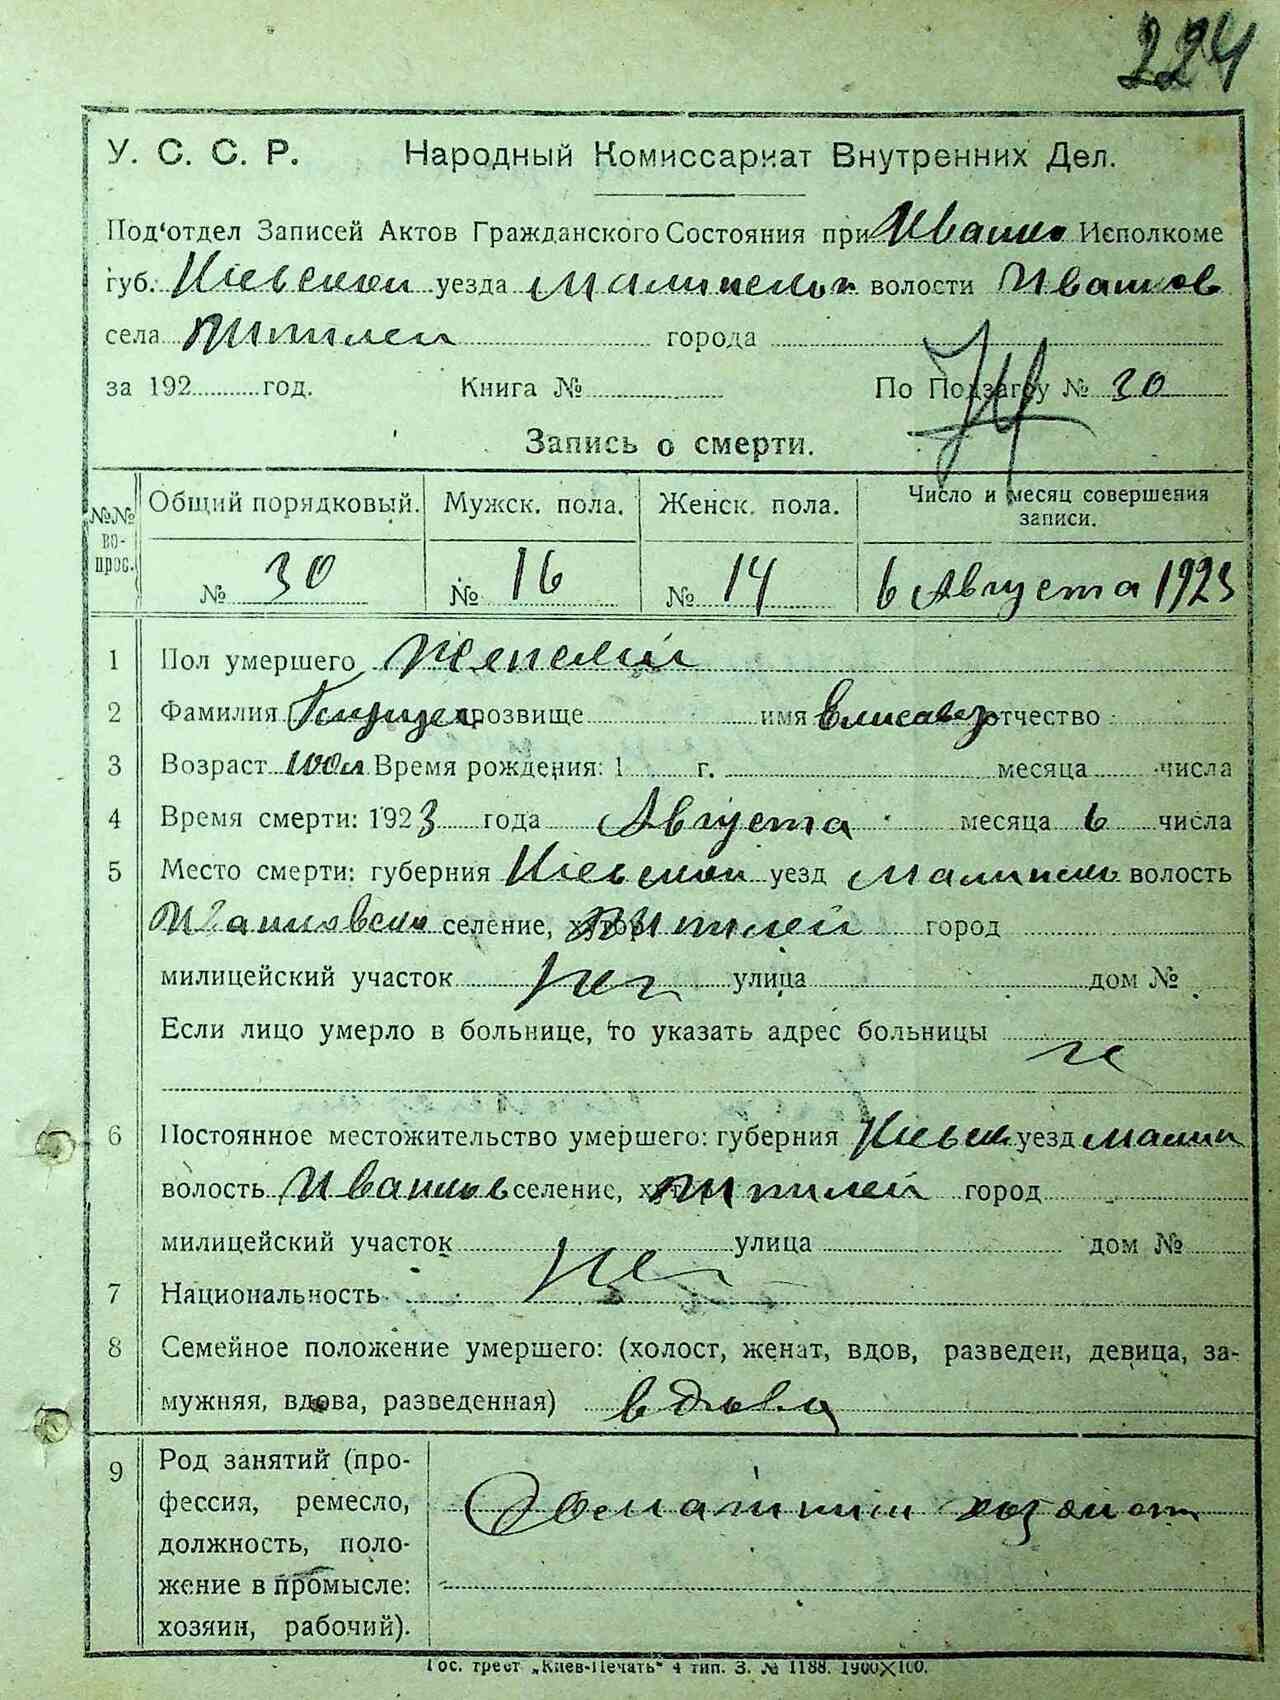 224
У. С. С. Р. Народный Комиссариат Внутренних Дел.
Под'отдел Записей Актов Гражданского Состояния при Ивашко Исполкоме
губ. Киевской уезда Малинском волости Ивашков
села города
за 192 год. Книга № По Подзагсу № 30
Запись о смерти.
№№ во- прос. Общий порядковый. Мужск. пола. Женск. пола. Число и месяц совершения записи.
№ 30 № 16 № 14 6 Августа 1923
1 Пол умершего Женский
2 Фамилия прозвище имя Елисавез отчество
3 Возраст Время рождения: 1 г. месяца числа
4 Время смерти: 1923 года Августа месяца 6 числа
5 Место смерти: губерния Киевской уезд Малинск волость
Ивашковско селение, хутор город
милицейский участок нет улица дом №
Если лицо умерло в больнице, то указать адрес больницы
6 Постоянное местожительство умершего: губерния Киевск уезд Малин
волость Ивашков селение, хутор город
милицейский участок улица дом №
7 Национальность
8 Семейное положение умершего: (холост, женат, вдов, разведен, девица, за-
мужняя, вдова, разведенная) вдова
9 Род занятий (про-
фессия, ремесло,
должность, поло-
жение в промысле:
хозяин, рабочий).
Гос. трест „Киев-Печать“ 4 тип. З. № 1188. 1900X100.